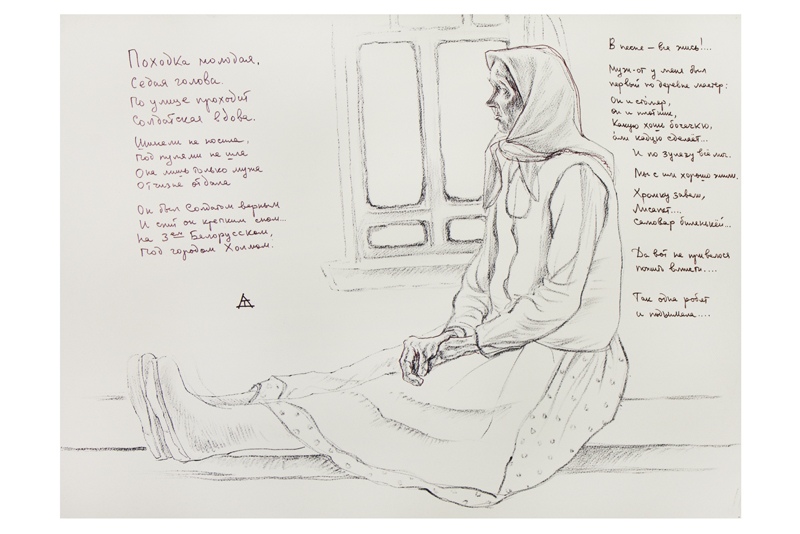 Походка молодая,
Седая голова.
По улице проходит
Солдатская вдова.
Шинели не носила,
Под пулями не шла
Она лишь только мужа
Отчизне отдала
Он был Солдатом верным
И спит он крепким сном...
На 3ем Белорусском,
Под городом Холмом.
В песне – вся жись!...
Муж-от у меня был
первой по деревне мастер:
Он и столяр,
он и плотник,
Какую хошь бочечкю,
али сделает...
И по всё мог.
Мы с им хорошо жили.
Хромку завели,
Лисапет....
Самовар биленькёй...
Да вот не привелося
пожить вместе....
Так одна робят
и подымала....